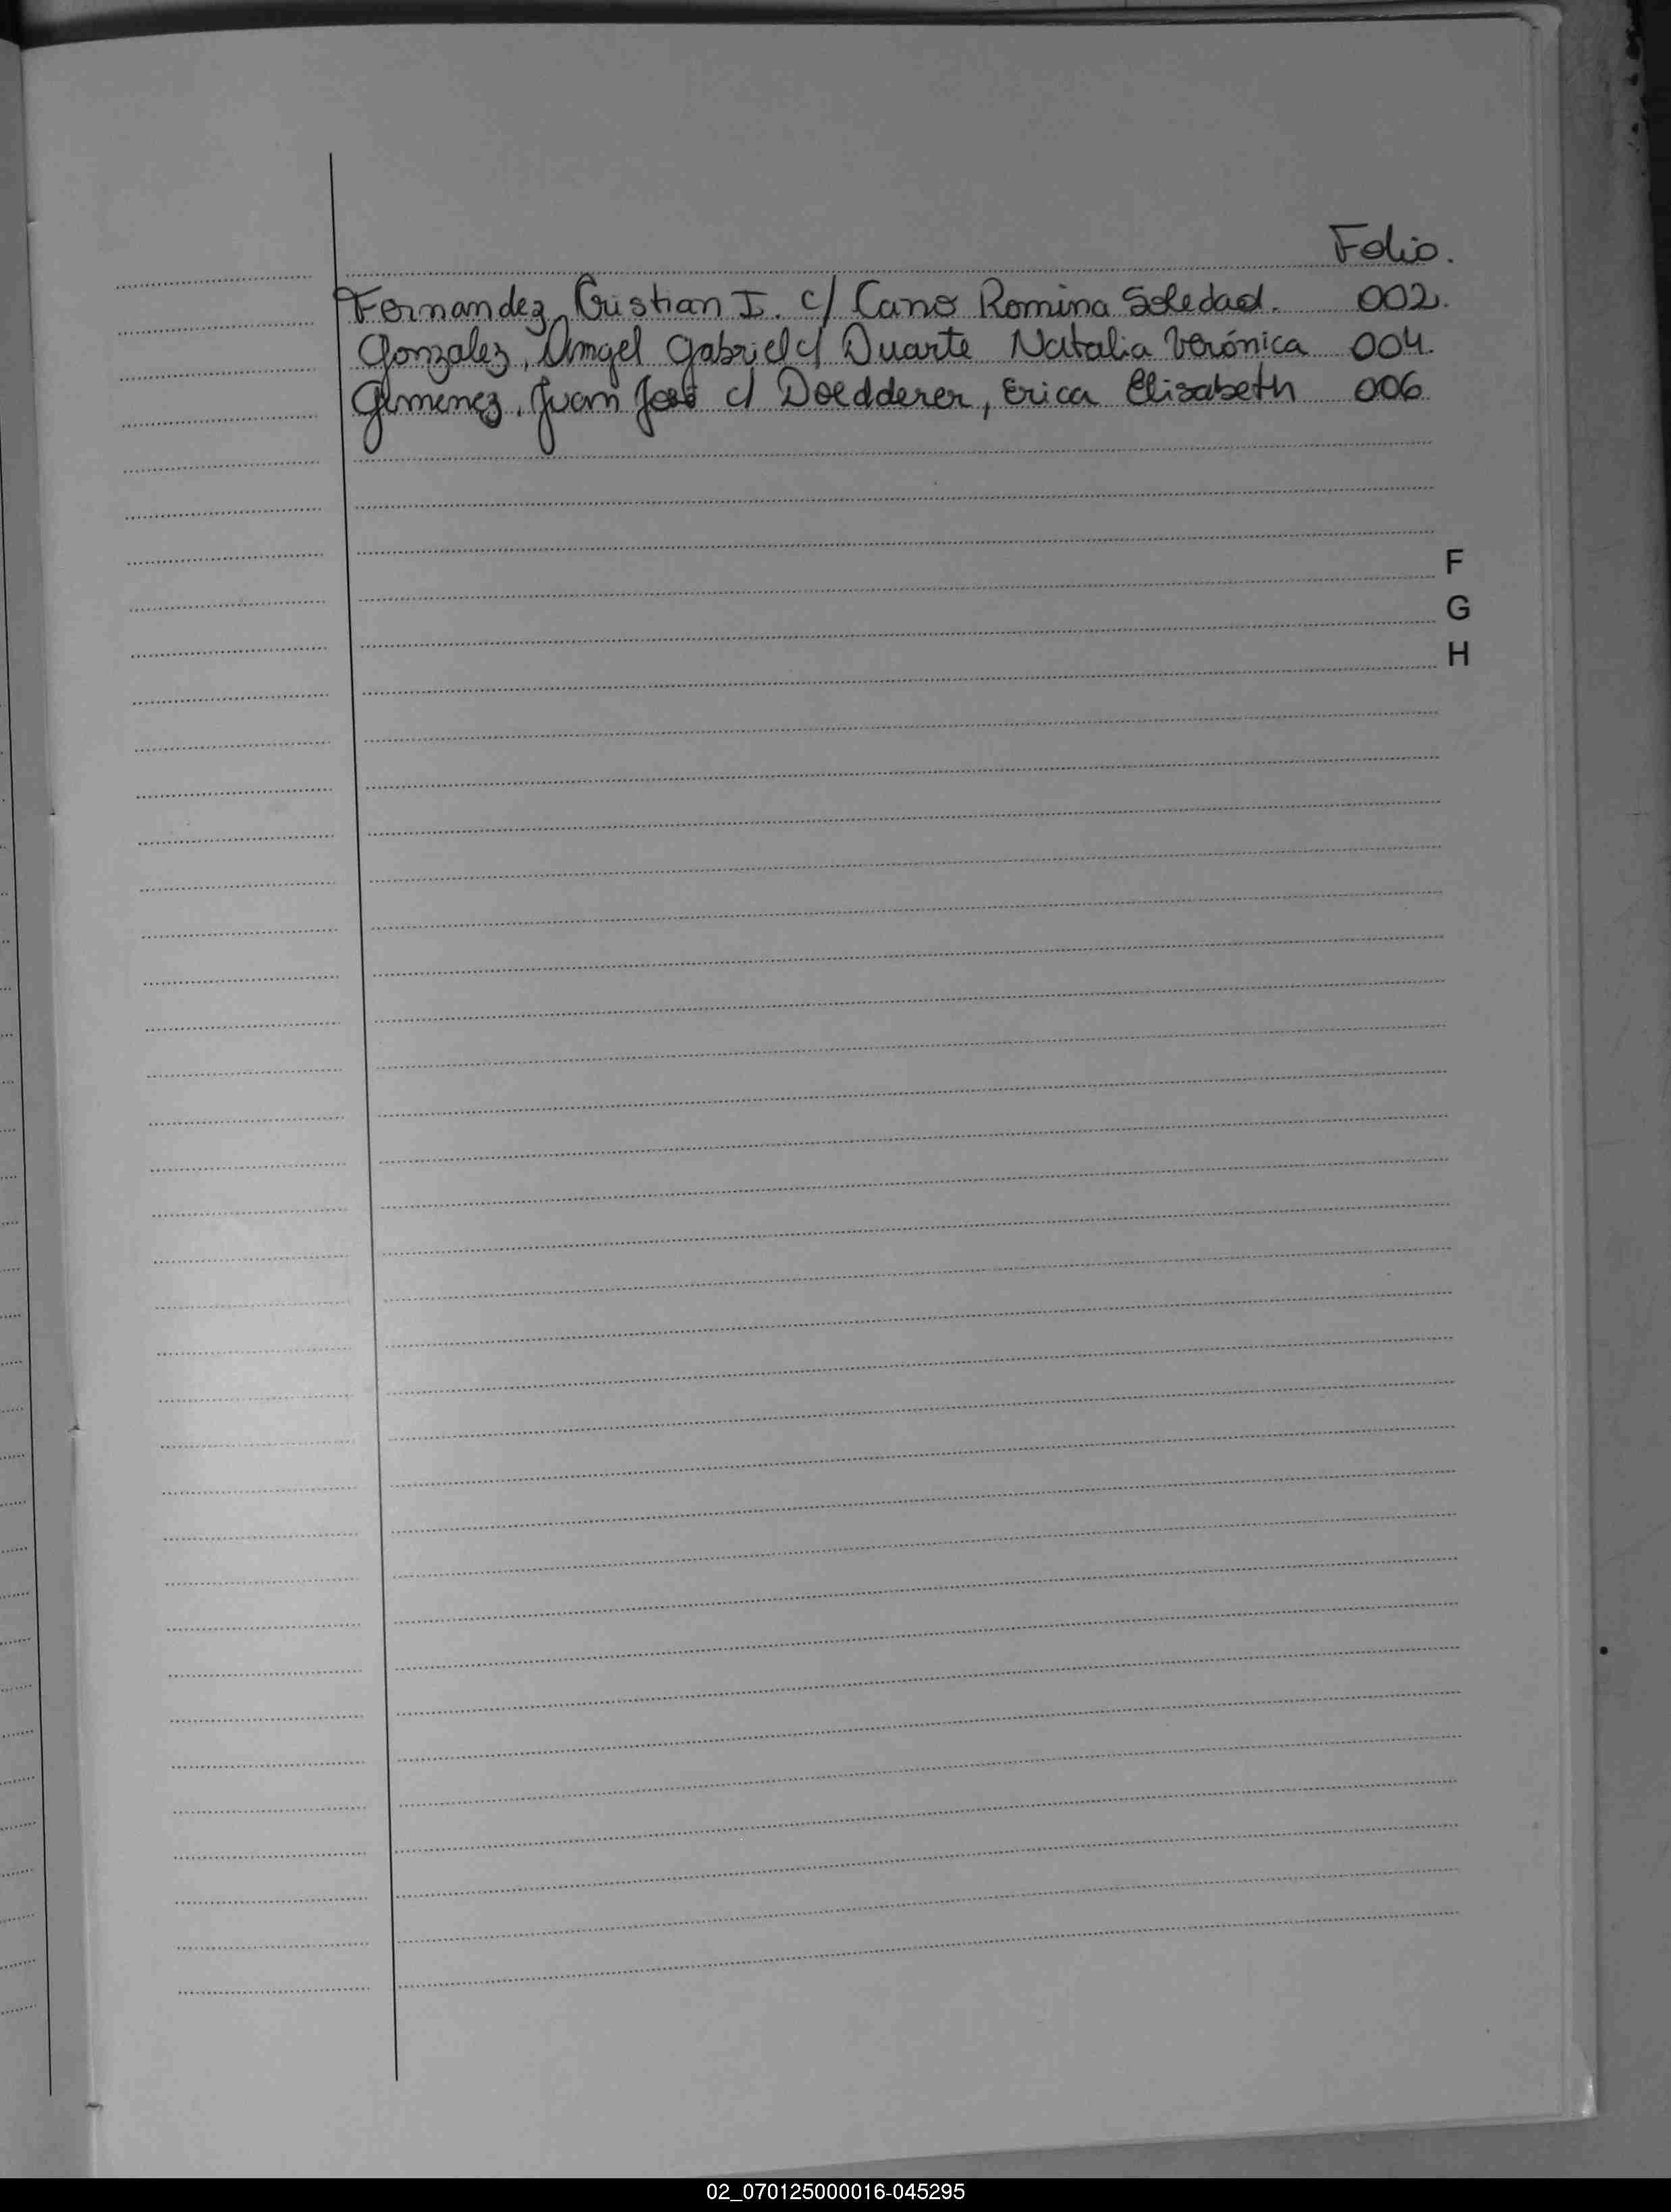 Folio.
Fernandez, Cristian I. c/ Cano Romina Soledad. 002.
Gonzalez, Angel Gabriel c/ Duarte Natalia Verónica 004.
Gimenez, Juan José c/ Doedderer, Erica Elisabeth 006
F
G
H
02_070125000016-045295